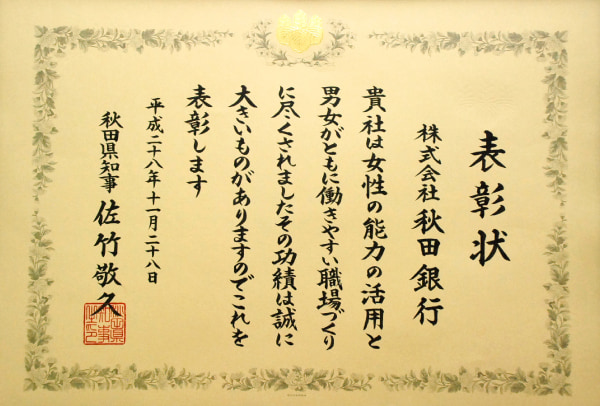 表彰状
株式会社 秋田銀行
貴社は女性の能力の活用と
男女がともに働きやすい職場づくり
に尽くされましたその功績は誠に
大きいものがありますのでこれを
表彰します
平成二十八年十一月二十八日
秋田県知事 佐竹敬久